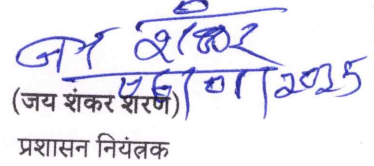 जय शंकर
शरण 2025
(जय शंकर शरण)
प्रशासन नियंत्रक